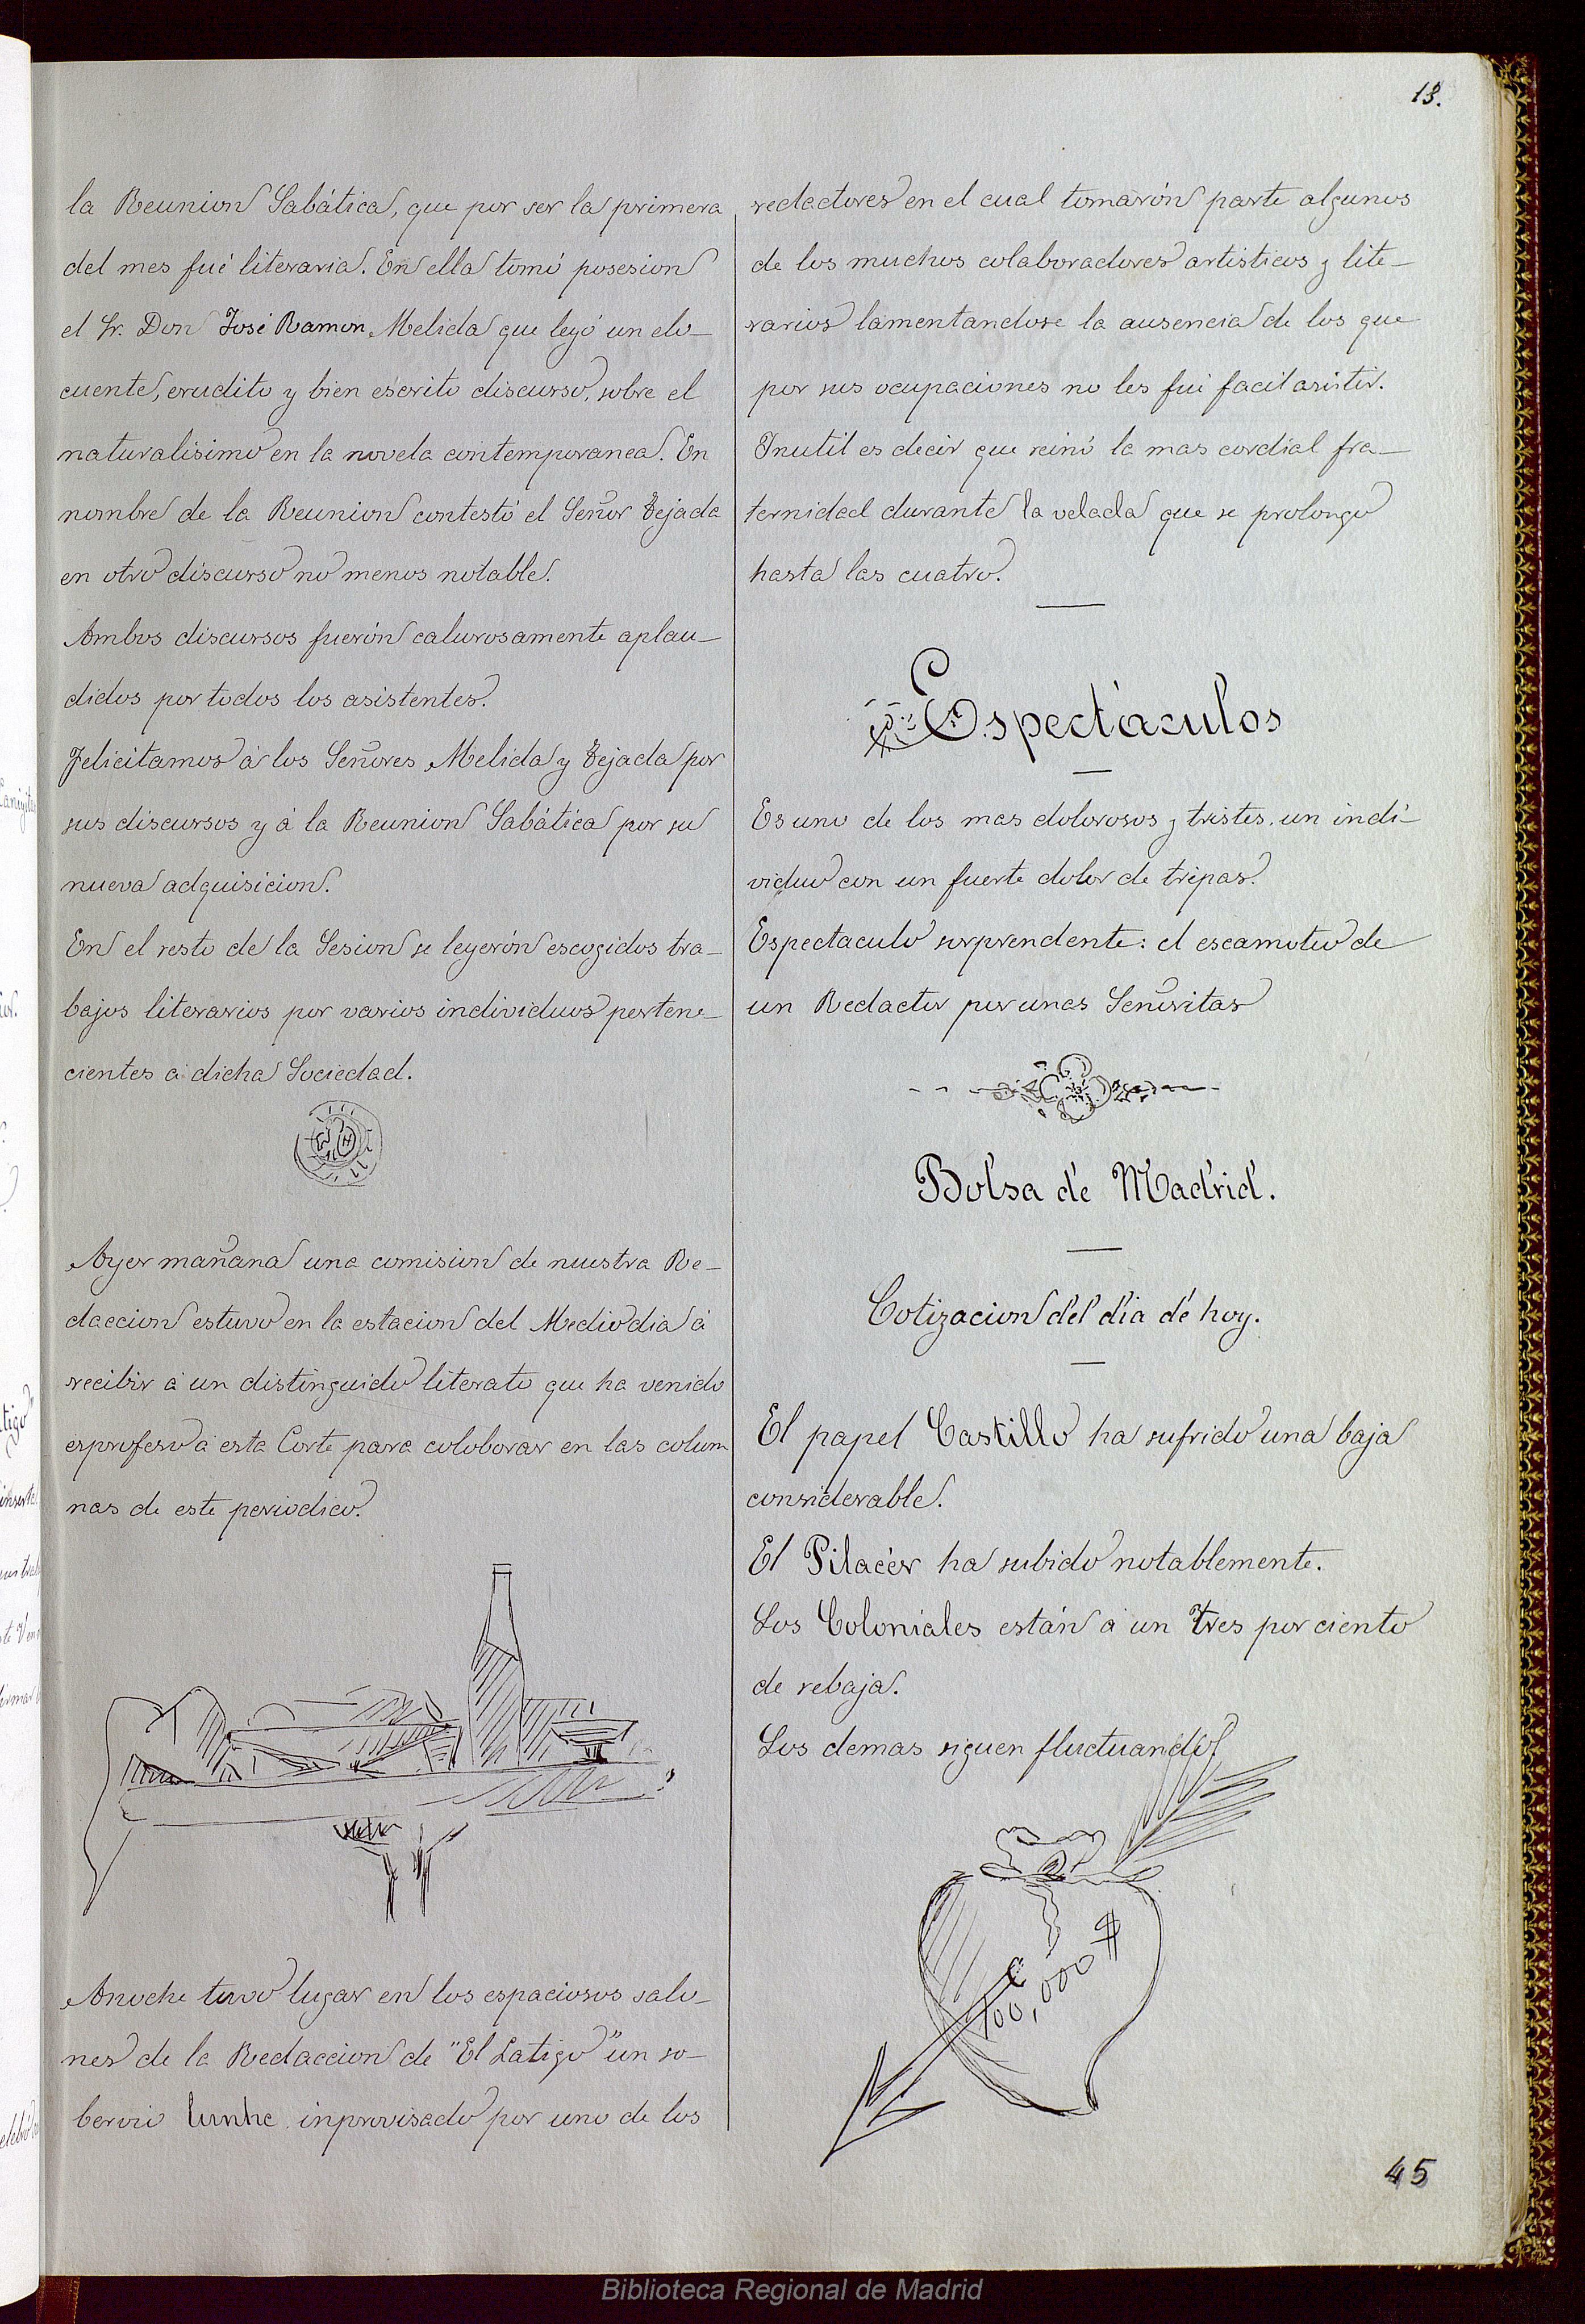 13.
la Reunion Sabática, que por ser la primera
del mes fué literaria. En ella tomó posesion
el Sr. Don José Ramon Melida que leyó un elo-
cuente, erudito y bien escrito discurso, sobre el
naturalisimo en la novela contemporanea. En
nombre de la Reunion contestó el Señor Tejada
en otro discurso no menos notable.
Ambos discursos fuerón calurosamente aplau-
didos por todos los asistentes.
Felicitamos á los Señores Melida y Tejada por
sus discursos y á la Reunion Sabática por su
nueva adquisicion.
En el resto de la Sesion se leyerón escogidos tra-
bajos literarios por varios individuos pertene-
cientes á dicha Sociedad.
Ayer mañana una comision de nuestra Re-
daccion estuvo en la estacion del Mediodia á
recibir á un distinguido literato que ha venido
esprofeso á esta Corte para coloborar en las colum
nas de este periodico.
Anoche tuvo lugar en los espaciosos salo-
nes de la Redaccion de "El Latigo" un so-
bervio lunhc inprovisado por uno de los
redactores en el cual tomarón parte algunos
de los muchos colaboradores artisticos y lite-
rarios lamentandose la ausencia de los que
por sus ocupaciones no les fui facil asistir.
Inutil es decir que reinó la mas cordial fra-
ternidad durante la velada que se prolongo
hasta las cuatro.
Espectáculos
Es uno de los mas dolorosos y tristes. un indi-
viduo con un fuerte dolor de tripas.
Espectaculo sorprendente: el escamoteo de
un Redactor por unas Señoritas
Bolsa de Madrid.
Cotizacion del dia de hoy.
El papel Castillo ha sufrido una baja
considerable.
El Pilacér ha subido notablemente.
Los Coloniales están á un tres por ciento
de rebaja.
Los demas siguen fluctuando.
100,000 $
45
Biblioteca Regional de Madrid